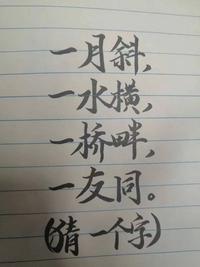 一月斜,
一水横,
一桥畔,
一友同。
(猜一个字)